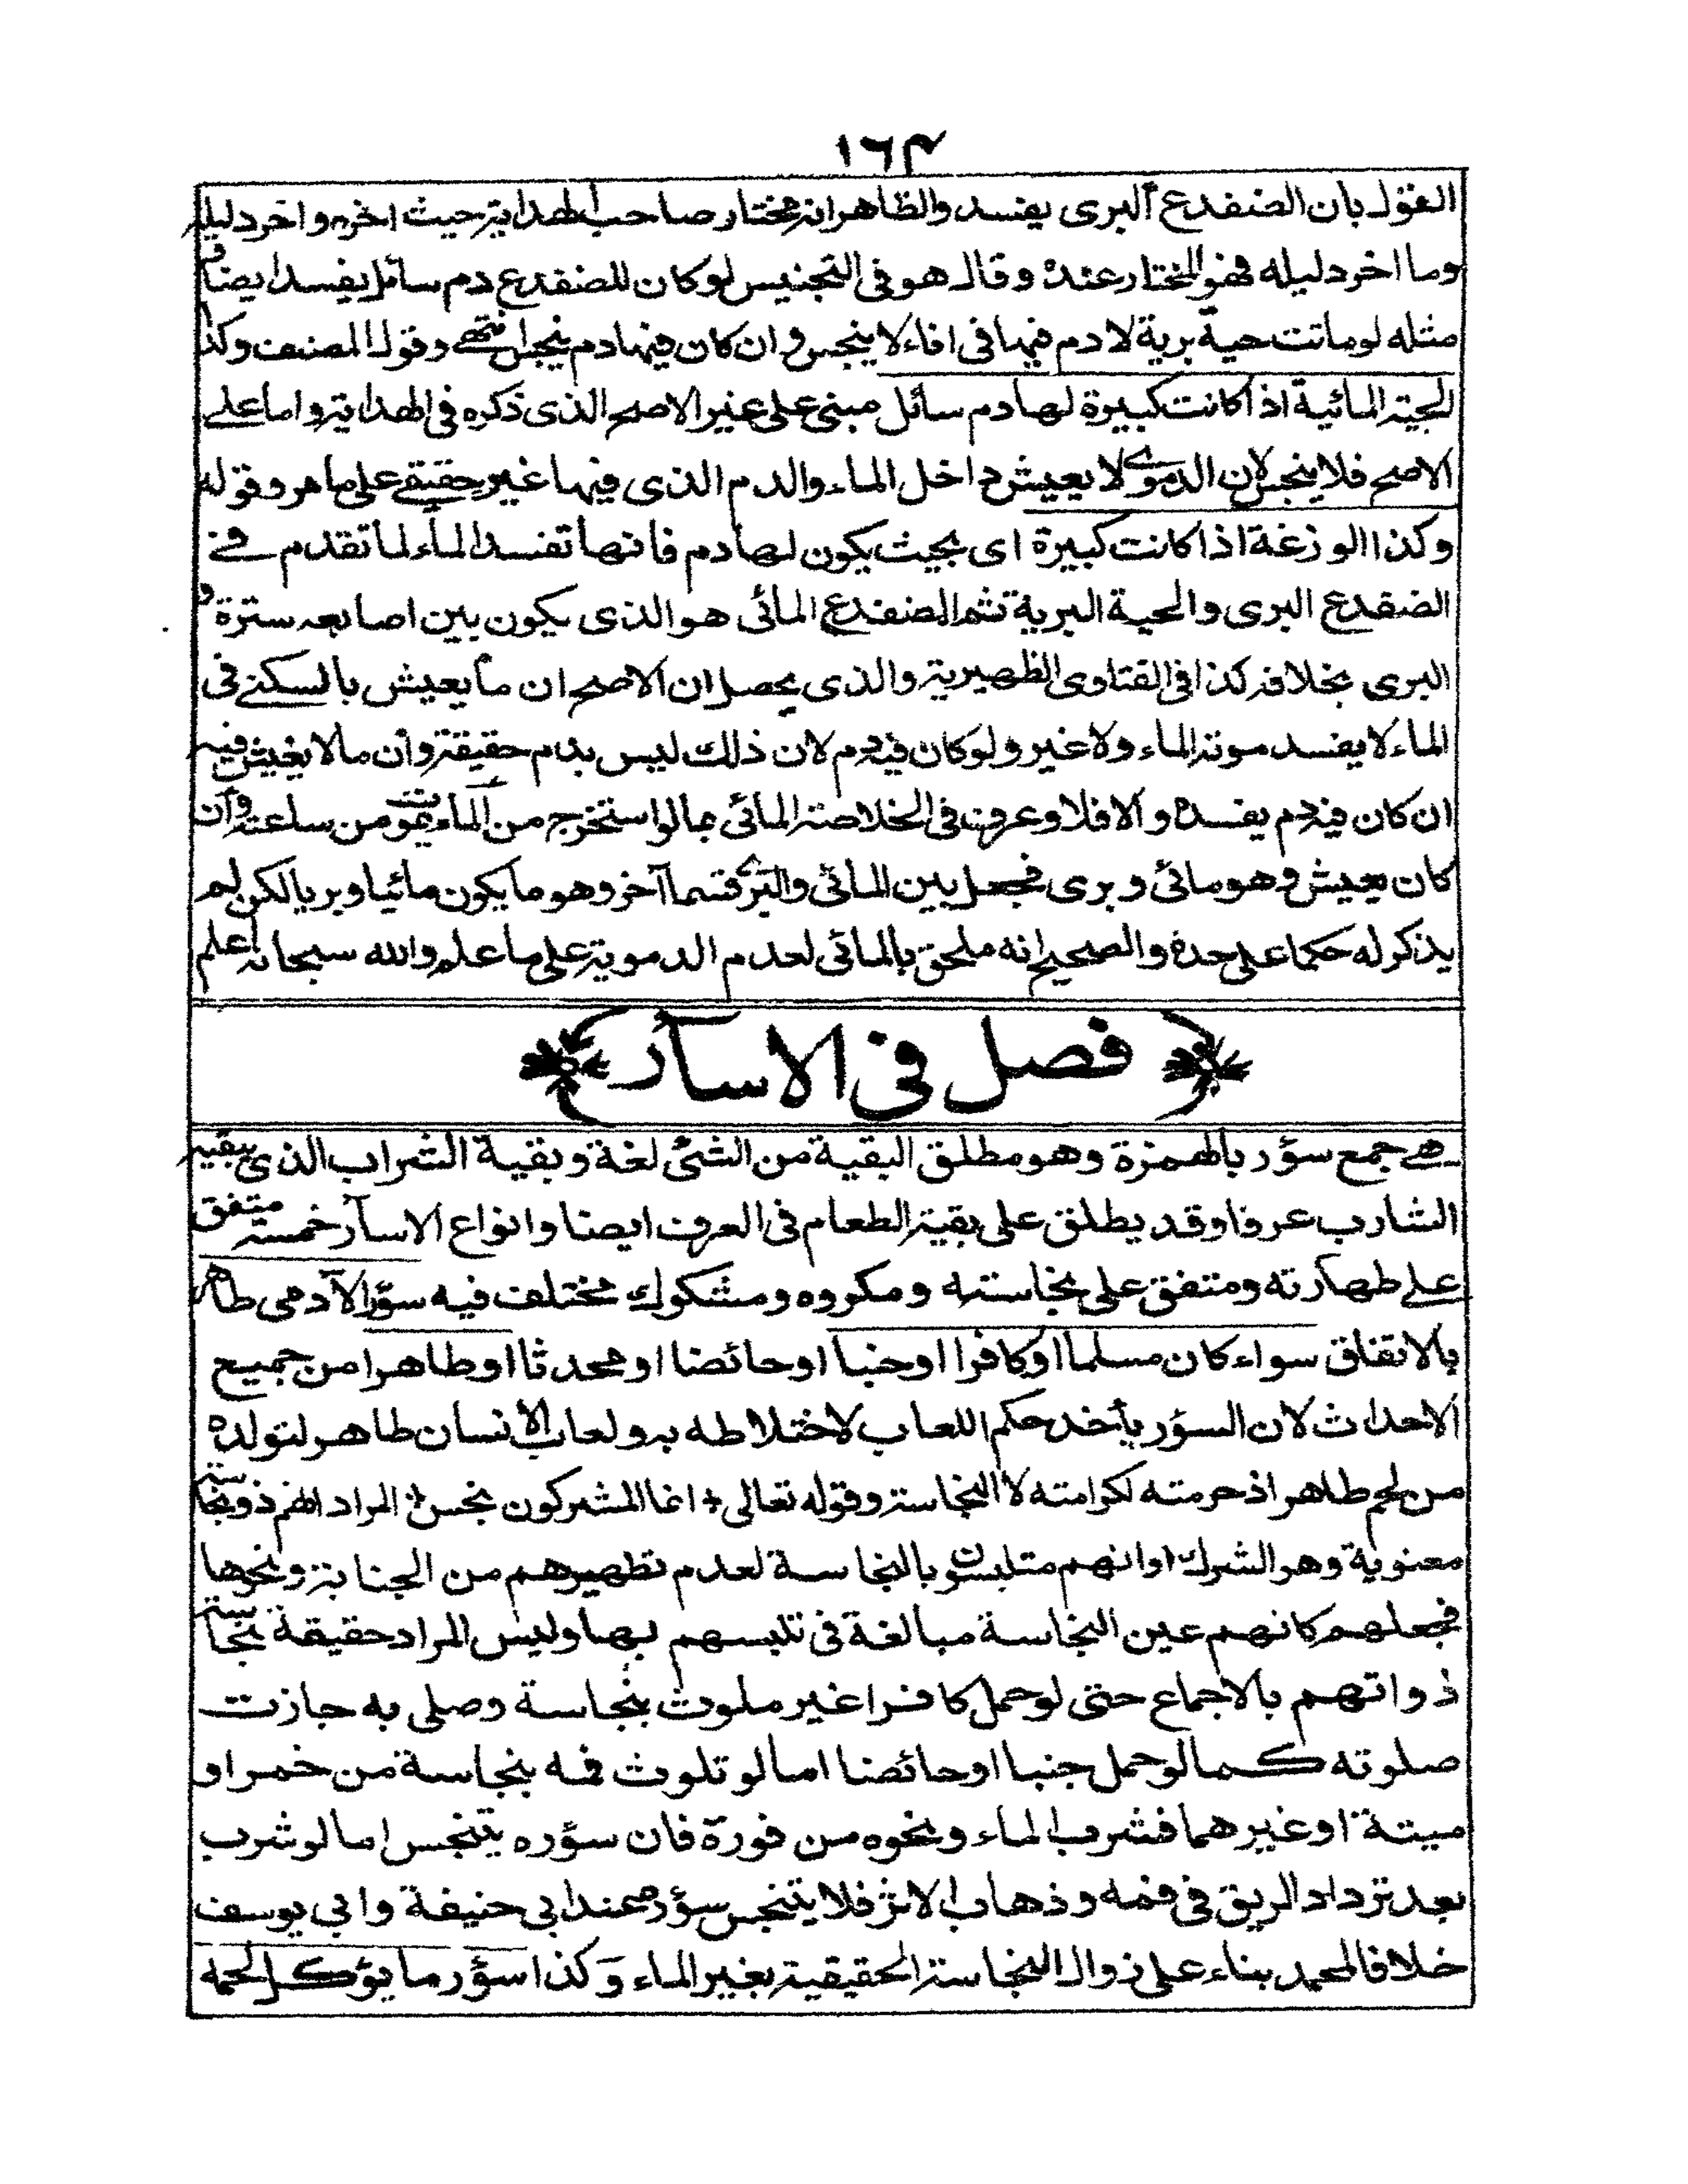 ١٦٤
القول بان الضفدع البرى يفسد والظاهر انه مختار صاحب الهداية حيث اخره واخر دليله
وما اخر دليله فهو المختار عنده وقال هو فى التجنيس لو كان للضفدع دم سائل يفسد ايضا و
مثله لو ماتت حية برية لا دم فيها فى اناء لا ينجس وان كان فيها دم ينجس انتهى وقول المصنف وكذا
الحية المائية اذا كانت كبيرة لها دم سائل مبنى على غير الاصح الذى ذكره فى الهداية واما على
الاصح فلا ينجس لان الدموى لا يعيش داخل الماء والدم الذى فيها غير حقيقى على ما مر وقوله
وكذا الوزغة اذا كانت كبيرة اى بحيث يكون لها دم فانها تفسد الماء لما تقدم فى
الضفدع البرى والحية البرية ثم الضفدع المائى هو الذى يكون بين اصابعه سترة و
البرى بخلافه كذا فى الفتاوى الظهيرية والذى يحصل ان الاصح ان ما يعيش بالسكنى فى
الماء لا يفسد موته الماء ولا غير ولو كان فيه دم لان ذلك ليس بدم حقيقة وان ما لا يعيش فيه
ان كان فيه دم يفسده والا فلا وعرف فى الخلاصة المائى بما لو استخرج من الماء يموت من ساعته وان
كان يعيش فهو مائى وبرى فجعل بين المائى والبرى قسما آخر وهو ما يكون مائيا وبريا لكن لم
يذكر له حكما على حدة والصحيح انه ملحق بالمائى لعدم الدموية على ما علم والله سبحانه اعلم
فصل فى الاسآر
هى جمع سؤر بالهمزة وهو مطلق البقية من الشئ لغة وبقية الشراب الذى يبقيه
الشارب عرفا وقد يطلق على بقية الطعام فى العرف ايضا وانواع الاسآر خمسة متفق
على طهارته ومتفق على نجاسته ومكروه ومشكوك مختلف فيه سؤر الآدمى طاهر
بالاتفاق سواء كان مسلما او كافرا او جنبا او حائضا او محدثا او طاهرا من جميع
الاحداث لان السؤر يأخذ حكم اللعاب لاختلاطه به ولعاب الانسان طاهر لتولده
من لحم طاهر اذ حرمته لكرامته لا النجاسة وقوله تعالى + انما المشركون نجس + المراد انهم ذو نجاسة
معنوية وهو الشرك او انهم متلبسون بالنجاسة لعدم تطهيرهم من الجنابة ونحوها
فجعلهم كانهم عين النجاسة مبالغة فى تلبسهم بها وليس المراد حقيقة نجاسة
ذواتهم بالاجماع حتى لو حمل كافرا غير ملوث بنجاسة وصلى به جازت
صلوته كما لو حمل جنبا او حائضا اما لو تلوث فمه بنجاسة من خمر او
ميتة او غيرهما فشرب الماء ونحوه من فورة فان سؤره يتنجس اما لو شرب
بعد تزداد الريق فى فمه وذهاب الاثر فلا يتنجس سؤره عند ابى حنيفة وابى يوسف
خلافا لمحمد بناء على زوال النجاسة الحقيقية بغير الماء وكذا سؤر ما يؤكل لحمه